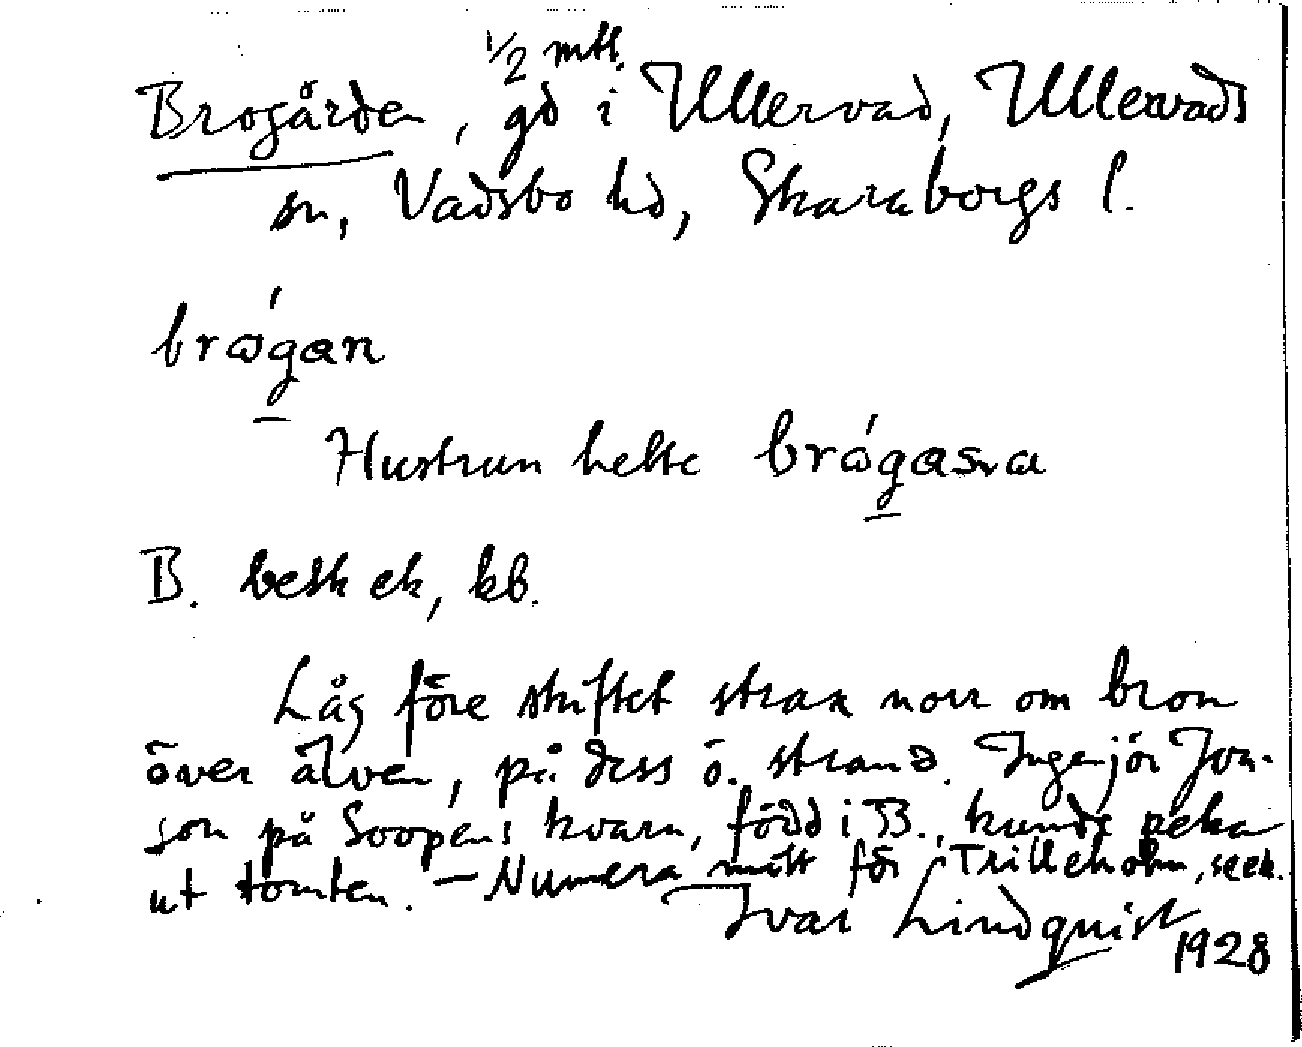 1/2 mtl.
Brogården, gd i Ullervad, Ullervads
sn, Vadsbo hd, Skaraborgs l.
brógan
Hustrun hette brógasra
B. besk ek, kb.
Låg före skiftet strax norr om bron
över älven, på dess ö. strand. Ingenjör Jon-
son på Soopens kvarn, född i B., kunde peka
ut tomten. – Numera mitt för Trilleholm, se ek.
Ivar Lindquist
1928